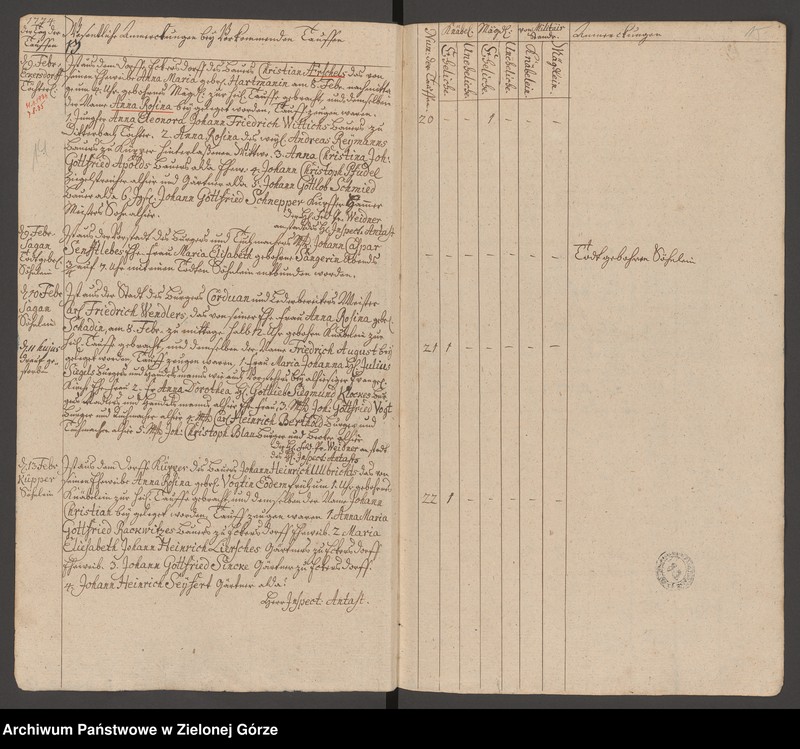 1774.
der Tag der Tauffen
Wesentliche Anmerckungen bey Vorkommenden Tauffen
d 9 Febr.
Eckersdorff
Töchterl.
Ist aus dem Dorffe Eckersdorff des Bauers Christian Nerchels das von
seinem Eheweibe Anna Maria gebohr. Hartmanin am 8. Febr. nachmitta
ge um 4. Uhr gebohrne Mägdl. zur heil. Tauffe gebracht, und demselben
der Name Anna Rosina bey geleget worden, Tauffzeugen waren.
1. Jungfer Anna Eleonora Johann Friedrich Wittichs Bauers zu
Tochter. 2. Anna Rosina des weyl. Andreas Reymanns
Bauers zu Küpper hinterlaßenen Wittwe. 3. Anna Christina Joh.
Gottfried Apolds Bauers alda Ehew. 4. Johann Christoph Prüdel
alhier und Gärtner alda 5. Johann Gottlob Schmied
Bauer alda 6. Johann Gottfried Schnepper Kupffer Hammer
Meisters Sohn alhier.
Weidner
anstatt des H. Inspect. Antast
d 9 Febr.
Sagan
Todtgebohr.
Söhnlein
Ist aus der Vorstadt des Bürgers und Tuchmachers Mstr. Johann Caspar
Senfftlebes Ehe Frau Maria Elisabeth gebohrne Sängerin Abends
7. Uhr mit einem Todten Söhnlein entbunden worden.
d 10 Febr.
Sagan
Söhnlein
d. 11 hujus
drauf ge-
storben
Ist aus der Stadt des Bürgers Corduan und Lederbereiters Meister
Carl Friedrich Wendlers, das von seiner Ehe Frau Anna Rosina gebohr.
Schadin, am 8. Febr. zu mittage halb 12. Uhr gebohrne Knäblein zur
heil. Tauffe gebracht, und demselben der Name Friedrich August bey
geleget worden, Tauff zeugen waren. 1. Frau Maria Johanna H. Julius
Bürgers und Handelsmanns wie auch Vorstehers bey alhiesiger Evangel.
Kirch Ehe Frau 2. Fr Anna Dorothea H. Gottlieb Siegmund Klockes Bür
gers und Handelsmanns alhier Ehe Frau, 3. Mstr. Joh. Gottfried Vogt
Bürger und Tuchmacher alhier 4. Mstr. Carl Heinrich Berthold Bürger und
Tuchmacher alhier 5. Mstr. Joh. Christoph Blau Bürger und alhier
Weidner anstatt
des H. Inspect. Antasts
d. 13 Febr.
Küpper
Söhnlein
Ist aus dem Dorffe Küpper des Bauers Johann Heinrich Ulbrichts das von
seinem Eheweibe Anna Rosina gebohr. Vogtin Eodem früh um 1. Uhr gebohrne
Knäblein zur heil. Tauffe gebracht, und demselben der Name Johann
Christian bey geleget worden, Tauffzeugen waren 1. Anna Maria
Gottfried Rackwitzes Bauers zu Eckersdorff Eheweib. 2. Maria
Elisabeth Johann Heinrich Liersches Gärtners zu Eckersdorff
Eheweib. 3. Johann Gottfried Sincke Gärtner zu Eckersdorff.
4. Johann Heinrich Seyfert Gärtner alda.
Herr Inspect. Antast.
Num: der Tauffen
Knäbl. Mägdl. vom Militair Stande
Eheliche. Uneheliche. Eheliche. Uneheliche. Knäblein. Mägdlein.
Anmerckungen
20 - - 1 - - -
- - - - - - - Todt gebohren Söhnlein
21 1 - - - - -
22 1 - - - - -
Archiwum Państwowe w Zielonej Górze